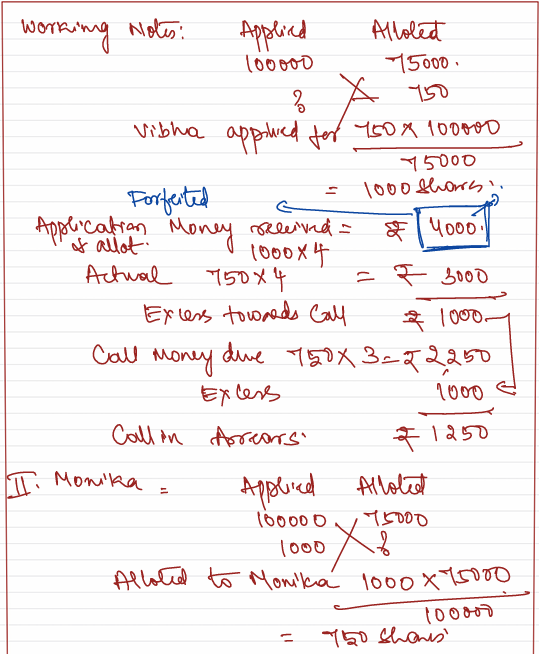 Working Notes: Applied Alloted
100000 75000.
? 750
Vibha applied for 750 x 100000
75000
= 1000 shares.
Forfeited
Application Money received = ₹ 4000.
& allot. 1000 x 4
Actual 750 x 4 = ₹ 3000
Excess towards Call ₹ 1000
Call Money due 750 x 3 = ₹ 2,250
Excess 1000
Call in Arrears. ₹ 1250
II. Monika = Applied Alloted
100000 75000
1000 ?
Alloted to Monika 1000 x 75000
100000
= 750 shares